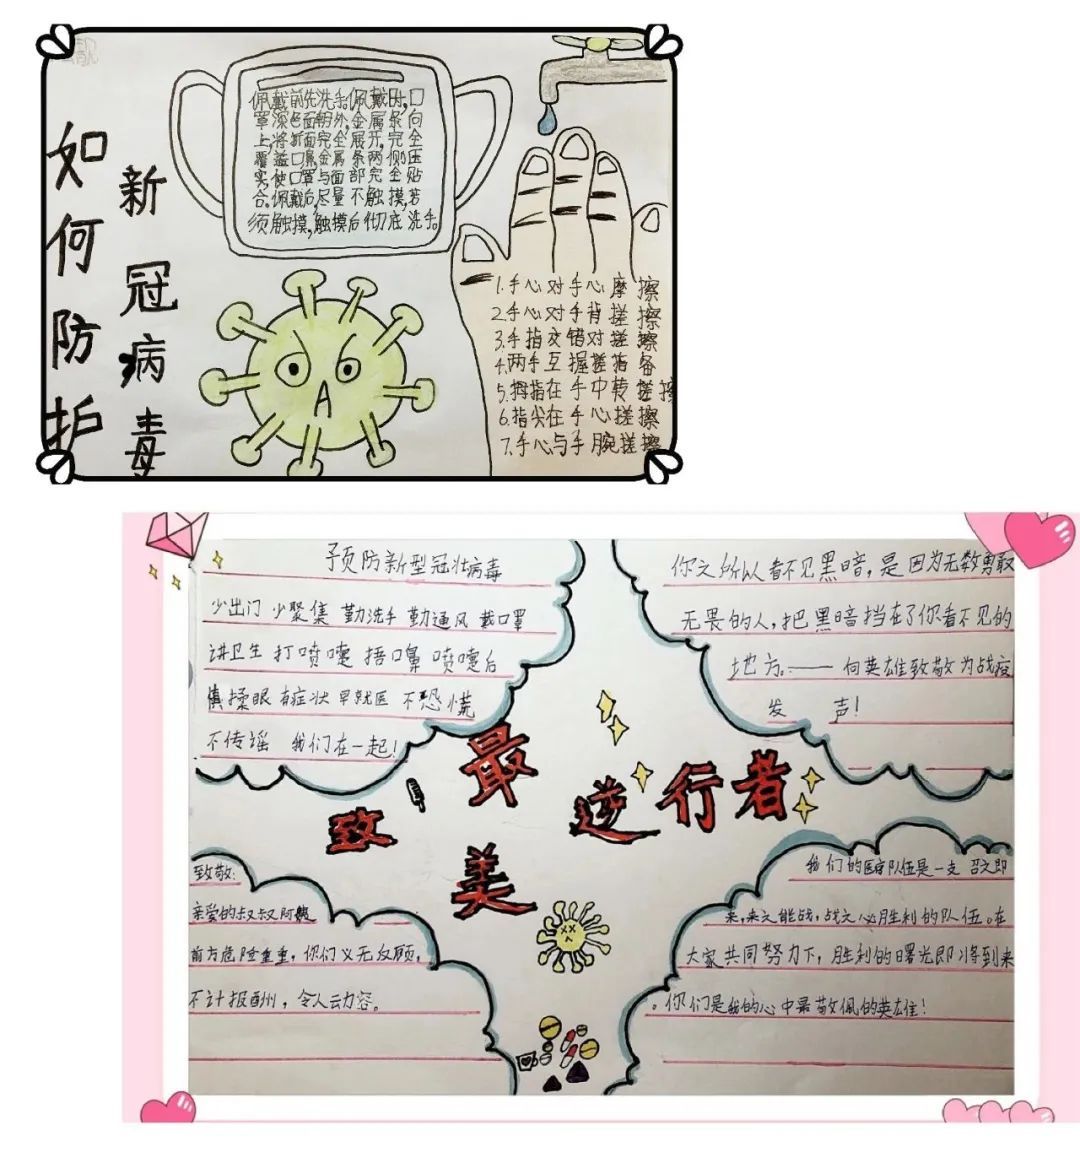 如何防护
新冠病毒
佩戴前先洗手。佩戴时,口
罩深色面朝外,金属条向
上,将折面完全展开,完全
覆盖口鼻,金属条两侧压
实,使口罩与面部完全贴
合。佩戴后,尽量不触摸,若
须触摸,触摸后彻底洗手。
1.手心对手心摩擦
2.手心对手背搓擦
3.手指交错对搓擦
4.两手互握搓指备
5.拇指在手中转搓擦
6.指尖在手心搓擦
7.手心与手腕搓擦
预防新型冠壮病毒
少出门 少聚集 勤洗手 勤通风 戴口罩
讲卫生 打喷嚏 捂口鼻 喷嚏后
慎揉眼 有症状 早就医 不恐慌
不传谣 我们在一起!
你之所以看不见黑暗,是因为无数勇敢
无畏的人,把黑暗挡在了你看不见的
地方。——向英雄致敬为战疫
发声!
致最美逆行者
致敬:
亲爱的叔叔阿姨
前方危险重重,你们义无反顾,
不计报酬,令人动容。
我们的医疗队伍是一支 召之即
来,来之能战,战之必胜利的队伍。在
大家共同努力下,胜利的曙光即将到来
。你们是我的心中最敬佩的英雄!